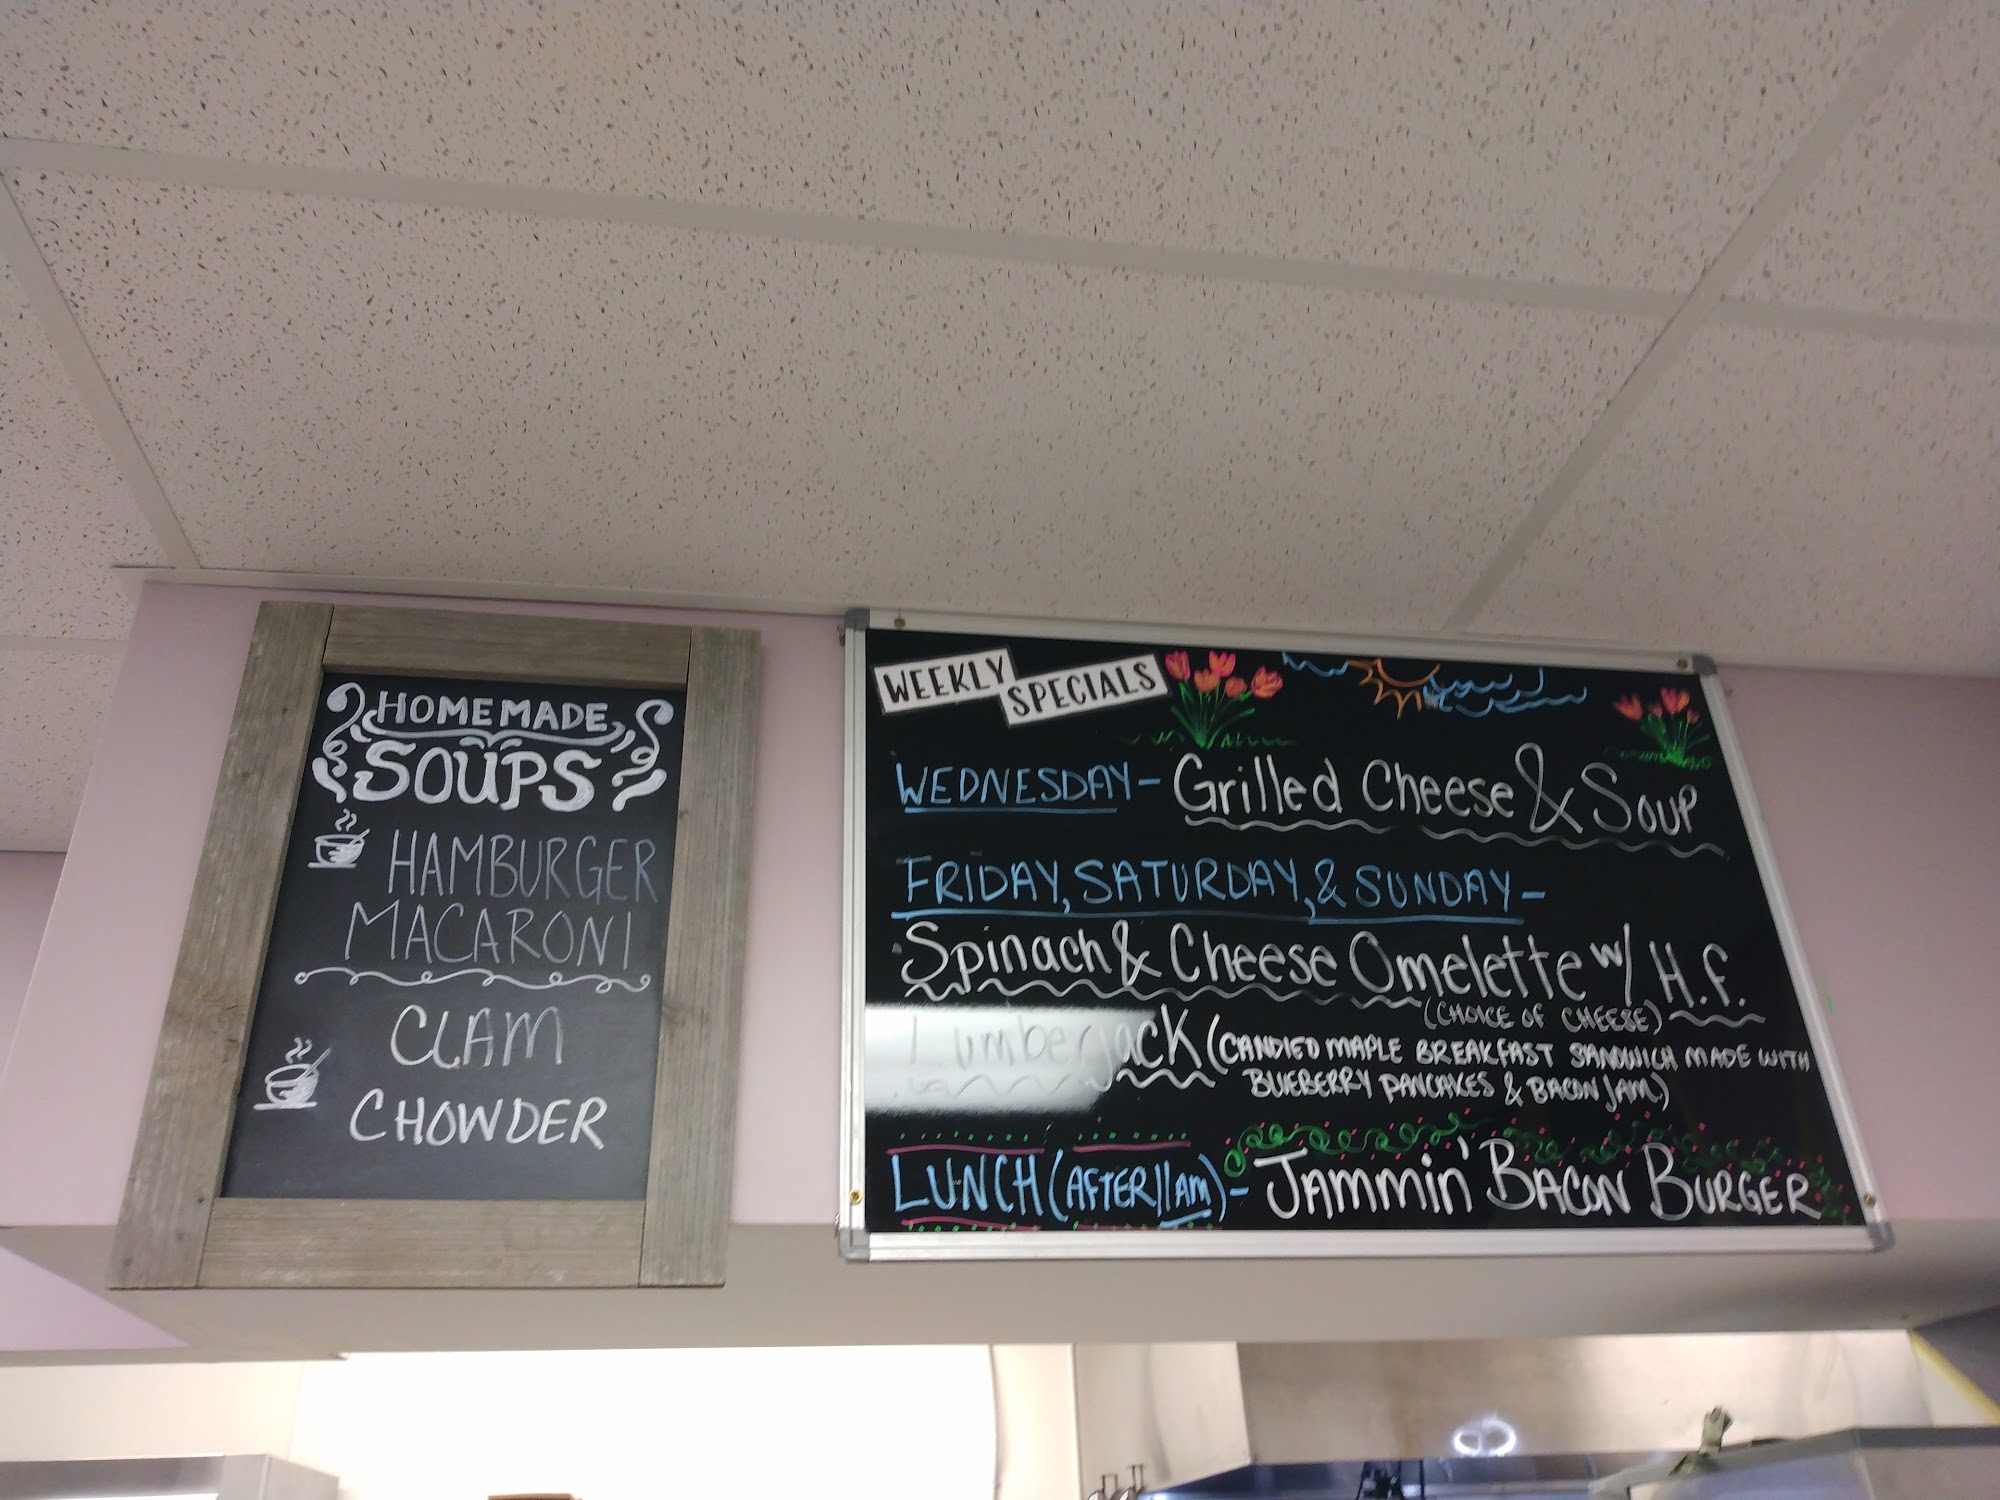 HOMEMADE
SOUPS
HAMBURGER
MACARONI
CLAM
CHOWDER
WEEKLY
SPECIALS
WEDNESDAY - Grilled Cheese & Soup
FRIDAY, SATURDAY, & SUNDAY -
Spinach & Cheese Omelette w/ H.f.
(CHOICE OF CHEESE)
Lumberjack (CANDIED MAPLE BREAKFAST SANDWICH MADE WITH
BLUEBERRY PANCAKES & BACON JAM)
LUNCH (AFTER 11AM) - JAMMIN' BACON BURGER